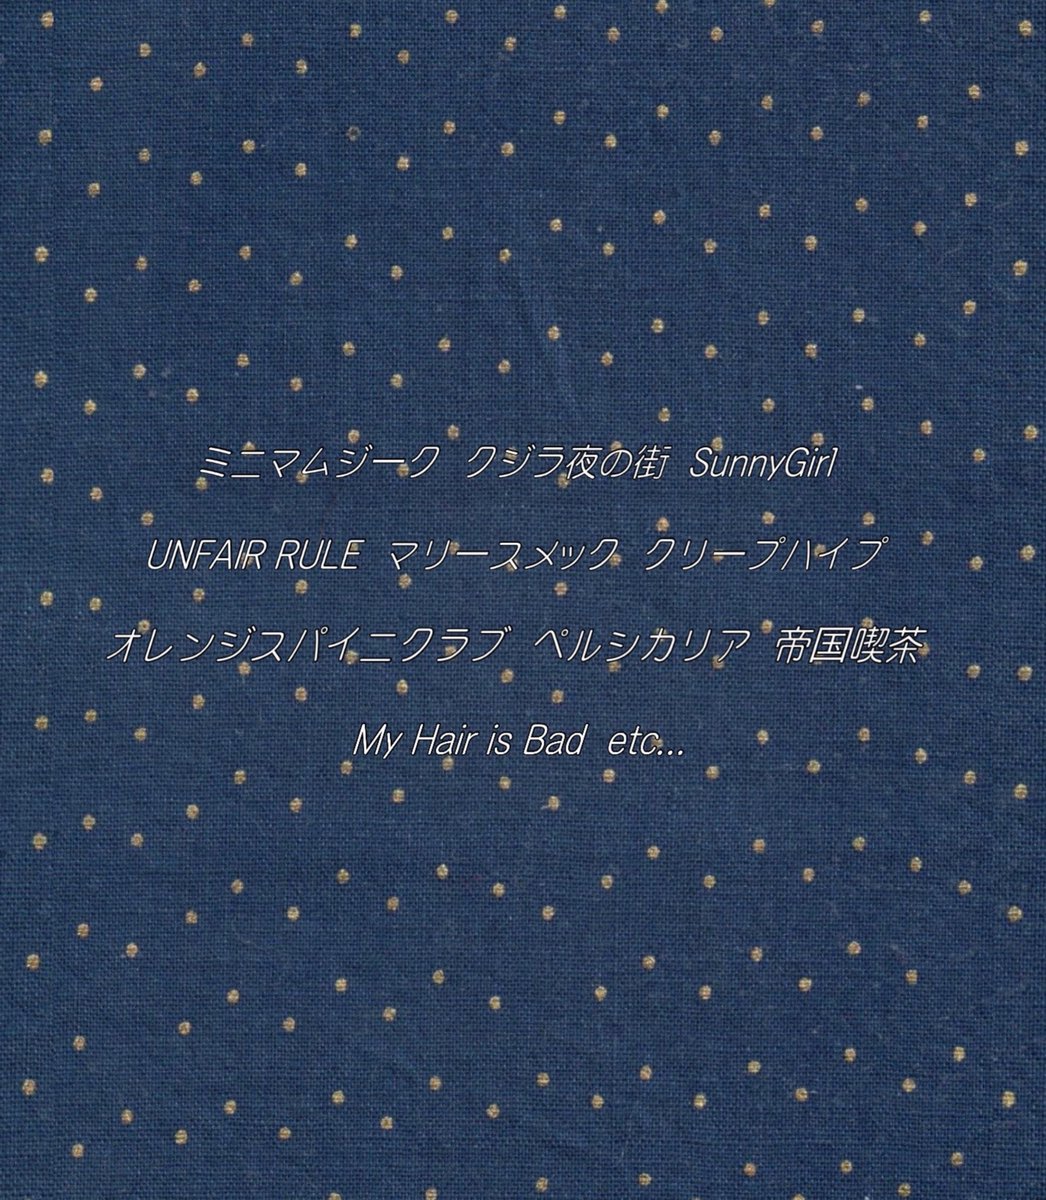 ミニマムジーク クジラ夜の街 SunnyGirl
UNFAIR RULE マリースメック クリープハイプ
オレンジスパイニクラブ ペルシカリア 帝国喫茶
My Hair is Bad etc...